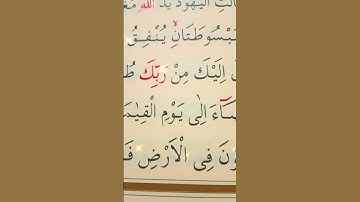 الْيَهُودُ يَدُ اللّٰهِ
مَبْسُوطَتَانِۙ يُنْفِقُ
اِلَيْكَ مِنْ رَبِّكَ
اِلٰى يَوْمِ الْقِيٰمَةِ
فِى الْاَرْضِ